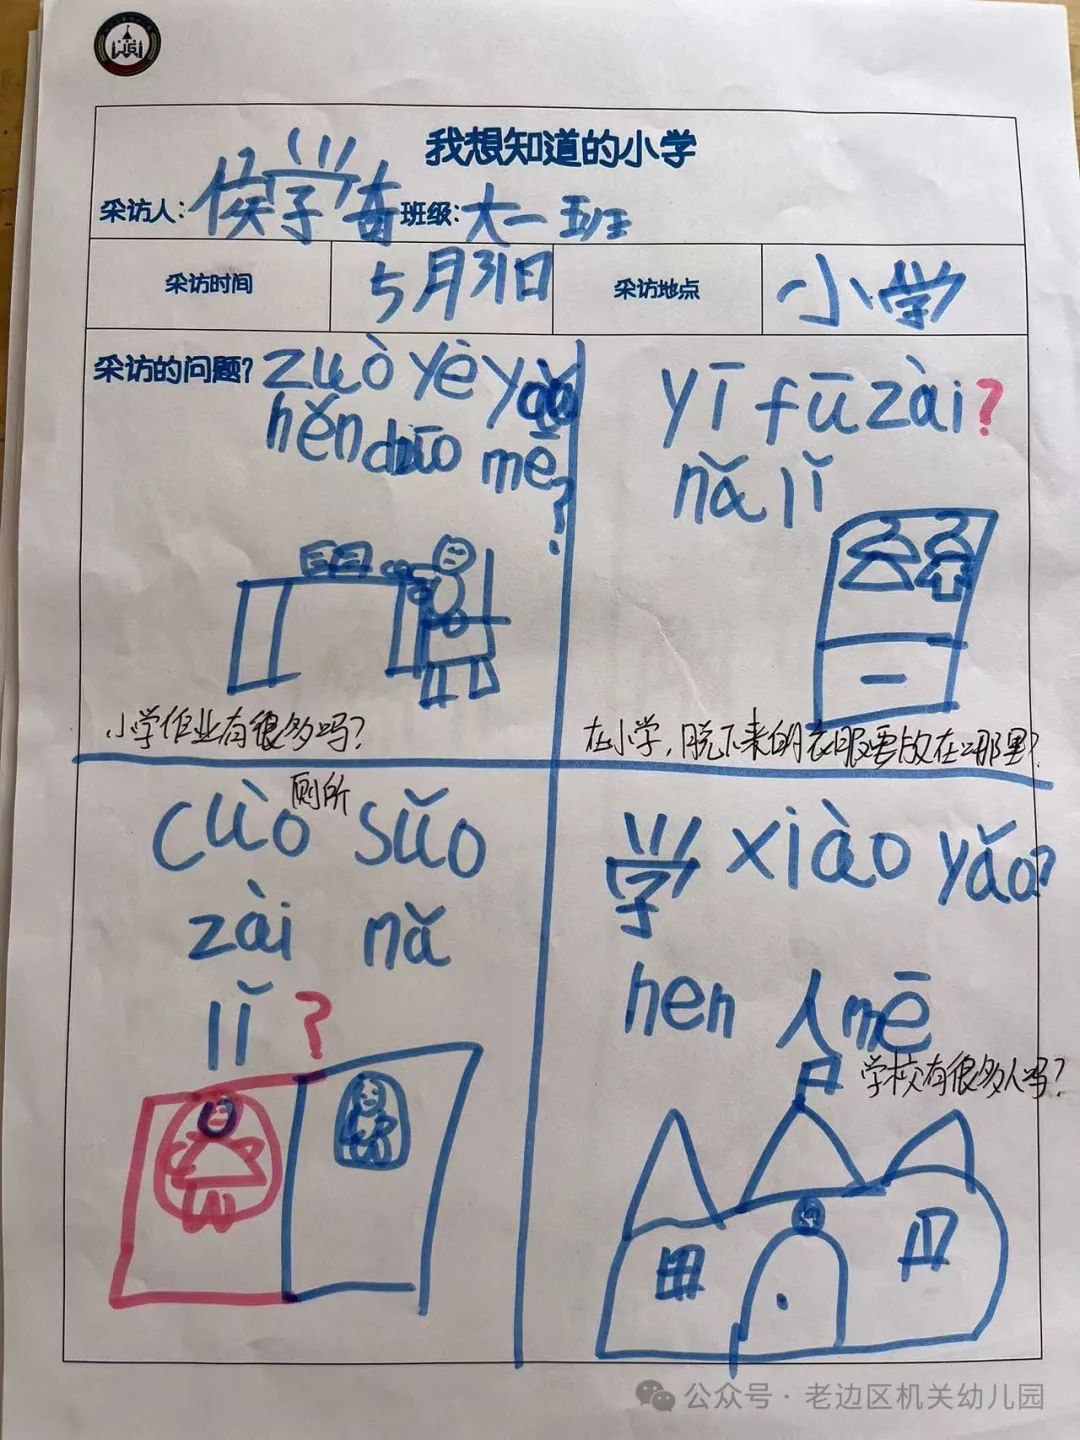 我想知道的小学
采访人：侯学 班级：大一班
采访时间 5月31日 采访地点 小学
采访的问题？ zuò yè yào
hěn duō mē
？
小学作业有很多吗？
yī fū zài ？
nǎ lǐ
在小学，脱下来的衣服要放在哪里？
cuò 厕所 sǔo
zài nǎ
lǐ ？
学 xiào yǎo？
hen 人 mē
学校有很多人吗？
公众号·老边区机关幼儿园